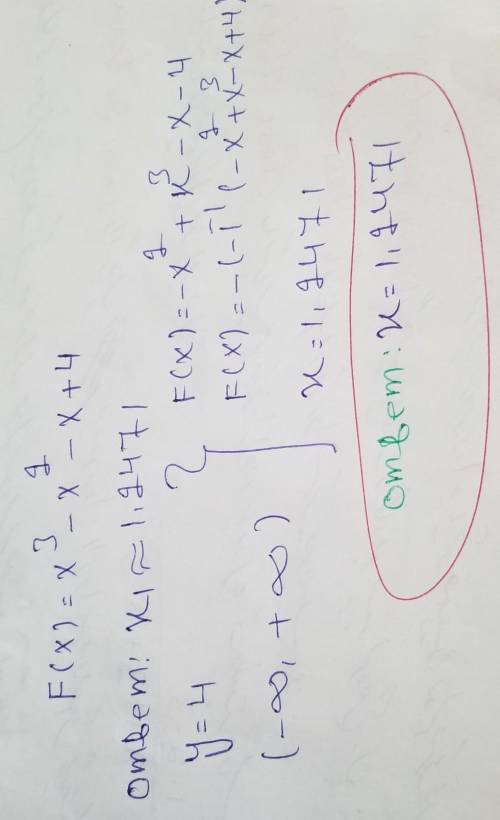 F(x) = x³ - x² - x + 4
Ответ: x₁ ≈ 1,2471
y = 4
(-∞, +∞)
F(x) = -x² + x³ - x - 4
F(x) = -(-1⁻¹(-x² + x³ - x + 4)
x = 1,2471
Ответ: x = 1,2471